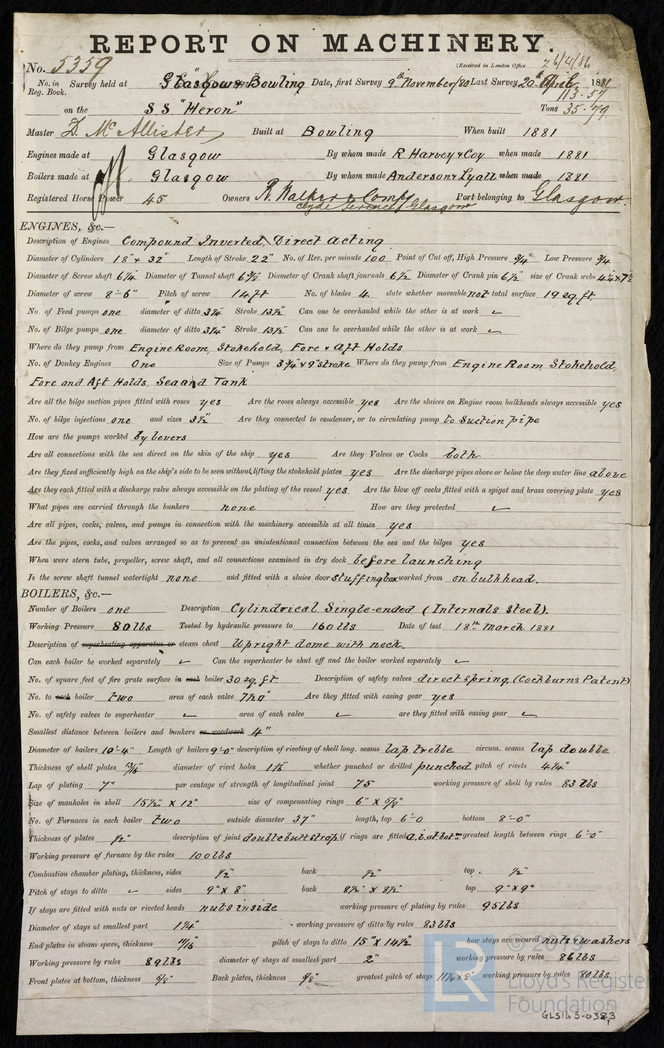 REPORT ON MACHINERY.
No. 5359 (Received in London Office 26/4/81
No. in Reg. Book. Survey held at Glasgow & Bowling Date, first Survey 9th November/80 Last Survey 20th April 1881
on the S S "Heron" Tons 113.57 35.79
Master D. McAllister Built at Bowling When built 1881
Engines made at Glasgow By whom made R Harvey & Coy when made 1881
Boilers made at Glasgow By whom made Anderson & Lyall when made 1881
Registered Horse Power 45 Owners R. Walker & Comp Port belonging to Glasgow
Glasgow
ENGINES, &c.—
Description of Engines Compound Inverted, Direct Acting
Diameter of Cylinders 18" & 32" Length of Stroke 22" No. of Rev. per minute 100 Point of Cut off, High Pressure 3/4" Low Pressure 3/4
Diameter of Screw shaft 6 1/4 Diameter of Tunnel shaft Diameter of Crank shaft journals 6 1/2 Diameter of Crank pin 6 1/2 size of Crank webs
Diameter of screw 8'-6" Pitch of screw 14 ft No. of blades 4 state whether moveable not total surface 19 sq ft.
No. of Feed pumps one diameter of ditto 3 1/4 Stroke 13 1/2 Can one be overhauled while the other is at work ✓
No. of Bilge pumps one diameter of ditto 3 1/4 Stroke 13 1/2 Can one be overhauled while the other is at work ✓
Where do they pump from Engine Room, Stokehold, Fore & Aft Holds
No. of Donkey Engines One Size of Pumps 3 3/4 & 9" stroke Where do they pump from Engine Room Stokehold,
Fore and Aft Holds Sea and Tank
Are all the bilge suction pipes fitted with roses yes Are the roses always accessible yes Are the sluices on Engine room bulkheads always accessible yes
No. of bilge injections one and sizes 3 1/2" Are they connected to condenser, or to circulating pump to Suction pipe
How are the pumps worked by levers
Are all connections with the sea direct on the skin of the ship yes Are they Valves or Cocks both
Are they fixed sufficiently high on the ship's side to be seen without lifting the stokehold plates yes Are the discharge pipes above or below the deep water line above
Are they each fitted with a discharge valve always accessible on the plating of the vessel yes Are the blow off cocks fitted with a spigot and brass covering plate yes
What pipes are carried through the bunkers none How are they protected ✓
Are all pipes, cocks, valves, and pumps in connection with the machinery accessible at all times yes
Are the pipes, cocks, and valves arranged so as to prevent an unintentional connection between the sea and the bilges yes
When were stern tube, propeller, screw shaft, and all connections examined in dry dock before launching
Is the screw shaft tunnel watertight none and fitted with a sluice door stuffing box worked from on bulkhead.
BOILERS, &c.—
Number of Boilers one Description Cylindrical Single-ended (Internals Steel).
Working Pressure 80 lbs Tested by hydraulic pressure to 160 lbs Date of test 18th March 1881
Description of superheating apparatus or steam chest Upright dome with neck.
Can each boiler be worked separately ✓ Can the superheater be shut off and the boiler worked separately ✓
No. of square feet of fire grate surface in each boiler 30 sq. ft. Description of safety valves direct spring (Cockburns Patent)
No. to each boiler two area of each valve Are they fitted with easing gear yes
No. of safety valves to superheater ✓ area of each valve ✓ are they fitted with easing gear ✓
Smallest distance between boilers and bunkers or woodwork 4"
Diameter of boilers 10'-4" Length of boilers 9'-0" description of riveting of shell long. seams lap treble circum. seams lap double
Thickness of shell plates 13/16 diameter of rivet holes whether punched or drilled punched pitch of rivets 4 1/4"
Lap of plating 7" per centage of strength of longitudinal joint 75 working pressure of shell by rules 83 lbs
Size of manholes in shell 15 1/2" X 12" size of compensating rings
No. of Furnaces in each Boiler two outside diameter 37" length, top 6'-0 bottom 8'-0"
Thickness of plates 1/2" description of joint double butt strap if rings are fitted greatest length between rings 6'-0"
Working pressure of furnace by the rules 100 lbs
Combustion chamber plating, thickness, sides 1/2" back 1/2" top 1/2"
Pitch of stays to ditto ✓ sides 9" X 8" back 8 1/2" X 8 1/2" top 9" X 9"
If stays are fitted with nuts or riveted heads nuts inside working pressure of plating by rules 95 lbs
Diameter of stays at smallest part 1 1/4" working pressure of ditto by rules 83 lbs
End plates in steam space, thickness 11/16" pitch of stays to ditto 15" X 14 1/2" how stays are secured nuts & washers
Working pressure by rules 89 lbs diameter of stays at smallest part 2" working pressure by rules 86 lbs
Front plates at bottom, thickness 5/8" Back plates, thickness greatest pitch of stays 11 1/4 X 8" working pressure by rules 80 lbs
LR © 2019
Lloyd's Register
Foundation
GLS145-0383